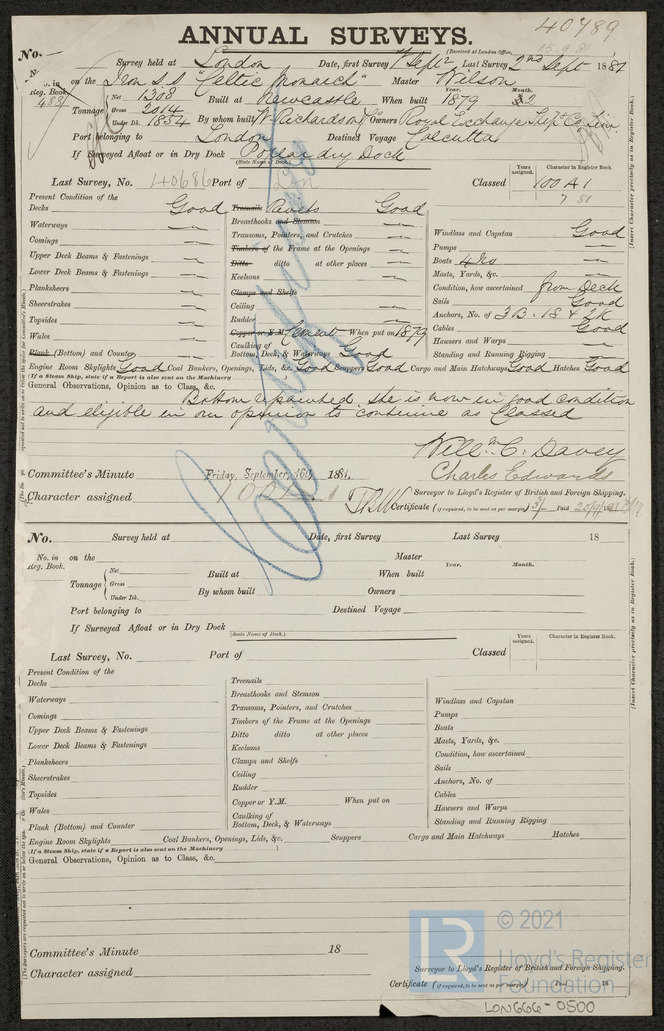 ANNUAL SURVEYS.
40789
(Received at London Office, 15.9.81
No. — Survey held at London Date, first Survey 1 Septr Last Survey 2nd Sept 1881
No. in Reg. Book. on the Iron S.S "Celtic Monarch" Master Wilson
488 Tonnage Net 1308 Gross 2014 Under Dk. 1854 Built at Newcastle When built Year. 1879 Month.
By whom built W. Richardson Owners Royal Exchange Ship Co. Lim.
Port belonging to London Destined Voyage Calcutta
If Surveyed Afloat or in Dry Dock Poplar dry Dock
(State Name of Dock.)
Last Survey, No. 40686 Port of Lon Classed Years assigned. Character in Register Book. 100 A1
7 81
Present Condition of the
Decks Good
Waterways
Comings
Upper Deck Beams & Fastenings
Lower Deck Beams & Fastenings
Planksheers
Sheerstrakes
Topsides
Wales
Plank (Bottom) and Counter
Treenails Rivets Good
Breasthooks and Stemson
Transoms, Pointers, and Crutches
Timbers of the Frame at the Openings
Ditto ditto at other places
Keelsons
Clamps and Shelfs
Ceiling
Rudder
Copper or Y.M. Cement When put on 1879
Caulking of
Bottom, Deck, & Waterways Good
Windlass and Capstan Good
Pumps
Boats 4 No
Masts, Yards, &c.
Condition, how ascertained from Deck
Sails Good
Anchors, No. of 3 B. 1 S & 2 K
Cables Good
Hawsers and Warps
Standing and Running Rigging
Engine Room Skylights Good Coal Bunkers, Openings, Lids, &c. Good Scuppers Good Cargo and Main Hatchways Good Hatches Good
(If a Steam Ship, state if a Report is also sent on the Machinery
General Observations, Opinion as to Class, &c.
Bottom repainted. She is now in good condition
and eligible in our opinion to continue as Classed
Willm C. Davey
Charles Edwards
Committee's Minute Friday, September 16th 1881.
Character assigned 100 A1
Surveyor to Lloyd's Register of British and Foreign Shipping.
Certificate (if required, to be sent as per margin) 5/- Paid 20/9/81
(Insert Character precisely as in Register Book.)
No. Survey held at Date, first Survey Last Survey 18
No. in Reg. Book. on the Master
Tonnage Net Gross Under Dk. Built at When built Year. Month.
By whom built Owners
Port belonging to Destined Voyage
If Surveyed Afloat or in Dry Dock
(State Name of Dock.)
Last Survey, No. Port of Classed Years assigned. Character in Register Book.
Present Condition of the
Decks
Waterways
Comings
Upper Deck Beams & Fastenings
Lower Deck Beams & Fastenings
Planksheers
Sheerstrakes
Topsides
Wales
Plank (Bottom) and Counter
Treenails
Breasthooks and Stemson
Transoms, Pointers, and Crutches
Timbers of the Frame at the Openings
Ditto ditto at other places
Keelsons
Clamps and Shelfs
Ceiling
Rudder
Copper or Y.M. When put on
Caulking of
Bottom, Deck, & Waterways
Windlass and Capstan
Pumps
Boats
Masts, Yards, &c.
Condition, how ascertained
Sails
Anchors, No. of
Cables
Hawsers and Warps
Standing and Running Rigging
Engine Room Skylights Coal Bunkers, Openings, Lids, &c. Scuppers Cargo and Main Hatchways Hatches
(If a Steam Ship, state if a Report is also sent on the Machinery )
General Observations, Opinion as to Class, &c.
Committee's Minute 18
Character assigned
Surveyor to Lloyd's Register of British and Foreign Shipping.
Certificate (if required, to be sent as per margin) 18
(Insert Character precisely as in Register Book.)
LR
© 2021
Lloyd's Register
Foundation
LON666-0500